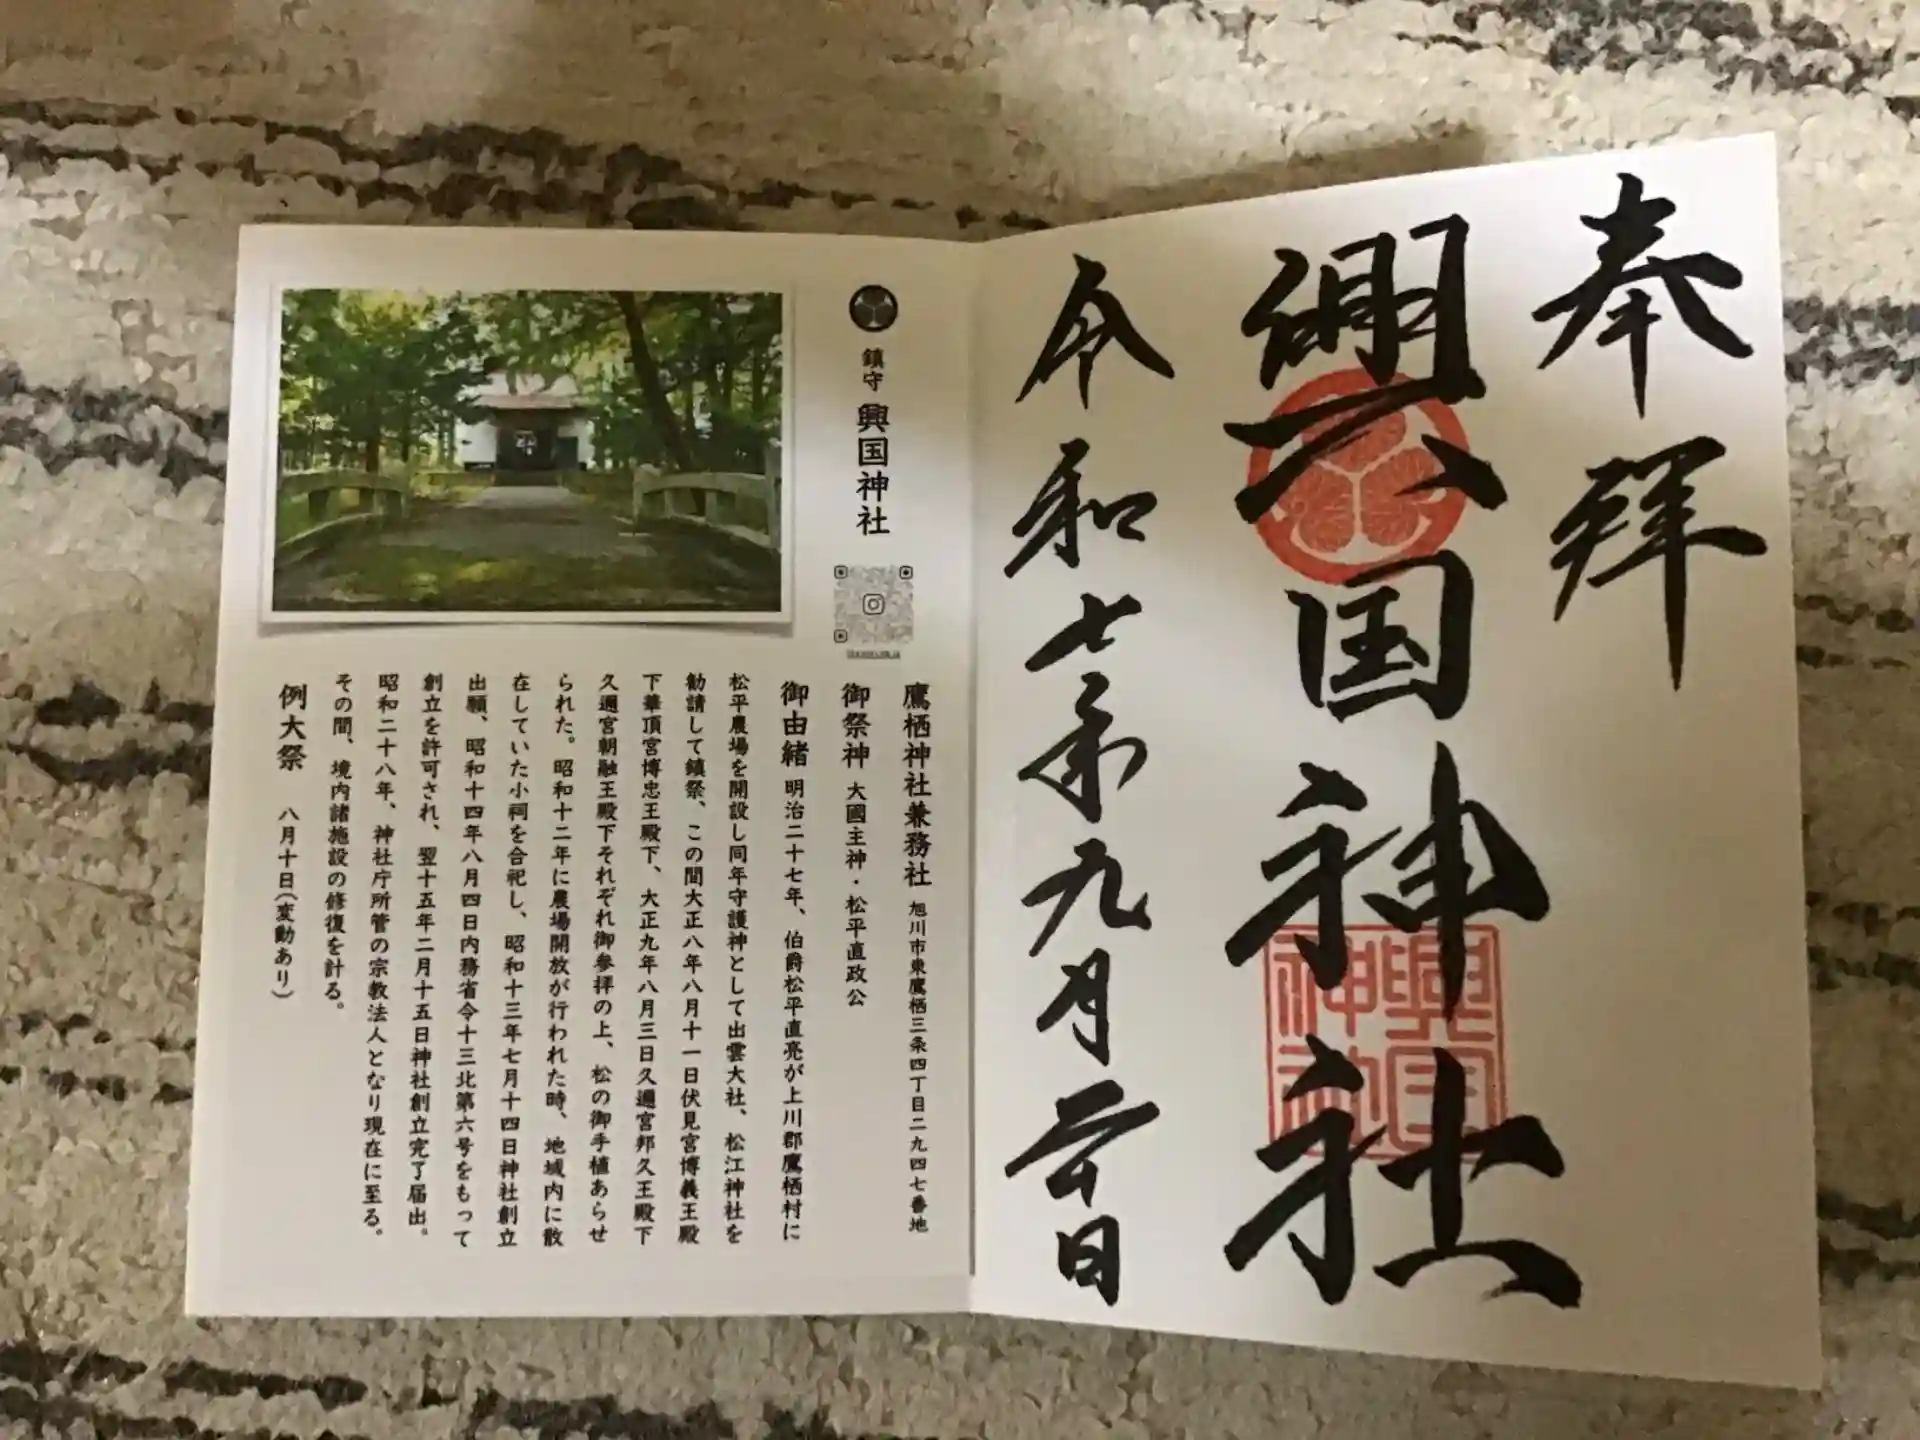 奉拝
興国神社
興国
神社
令和七年九月二日
鎮守 興国神社
鷹栖神社兼務社 旭川市東鷹栖三条四丁目二九四七番地
御祭神 大國主神・松平直政公
御由緒 明治二十七年、伯爵松平直亮が上川郡鷹栖村に
松平農場を開設し同年守護神として出雲大社、松江神社を
勧請して鎮祭、この間大正八年八月十一日伏見宮博義王殿
下華頂宮博忠王殿下、大正九年八月三日久邇宮邦久王殿下
久邇宮朝融王殿下それぞれ御参拝の上、松の御手植あらせ
られた。昭和十二年に農場開放が行われた時、地域内に散
在していた小祠を合祀し、昭和十三年七月十四日神社創立
出願、昭和十四年八月四日内務省令十三北第六号をもって
創立を許可され、翌十五年二月十五日神社創立完了届出。
昭和二十八年、神社庁所管の宗教法人となり現在に至る。
その間、境内諸施設の修復を計る。
例大祭 八月十日(変動あり)